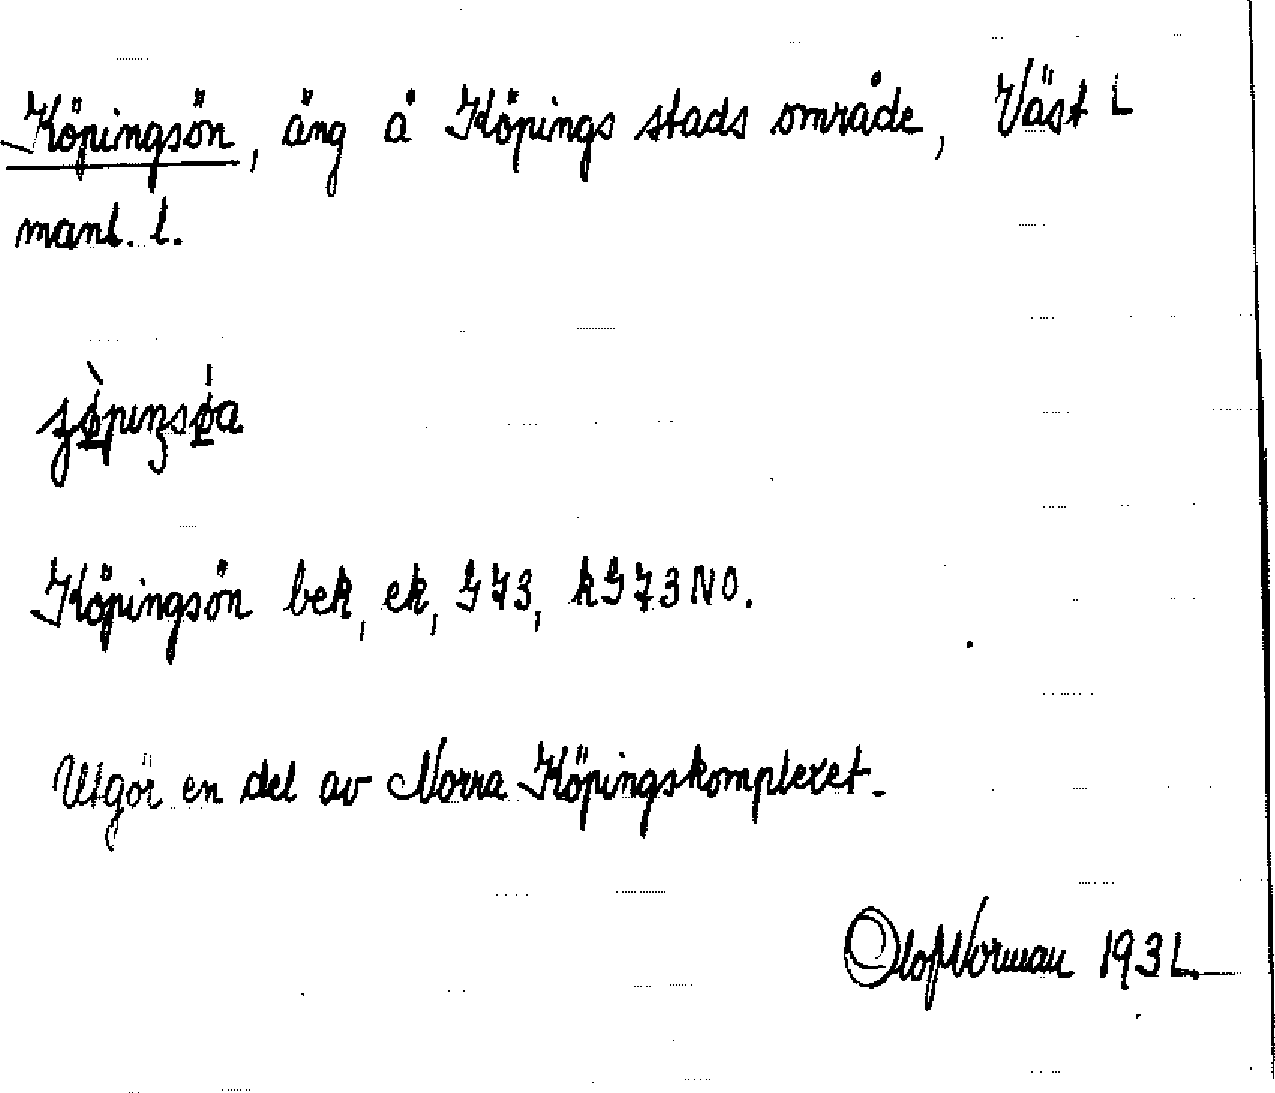 Köpingsön, äng å Köpings stads område, Väst
manl. l.
Köpingsön bek, ek, G73, kG73NO.
Utgör en del av Norra Köpingskomplexet.
Olof Norman 193